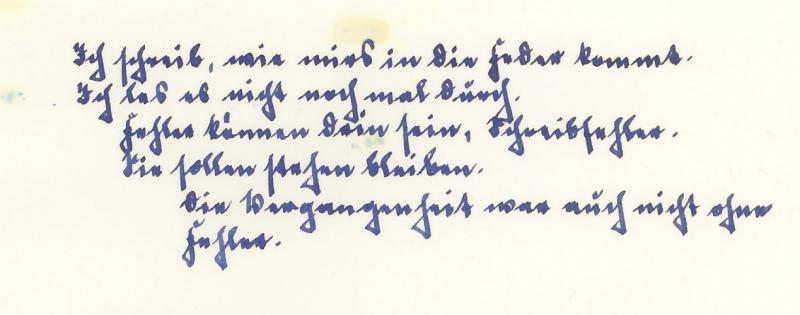 Ich schreib, wie mirs in die Feder kommt.
Ich les es nicht noch mal durch.
Fehler können drin sein, Schreibfehler.
Sie sollen stehen bleiben.
Die Vergangenheit war auch nicht ohne
Fehler.